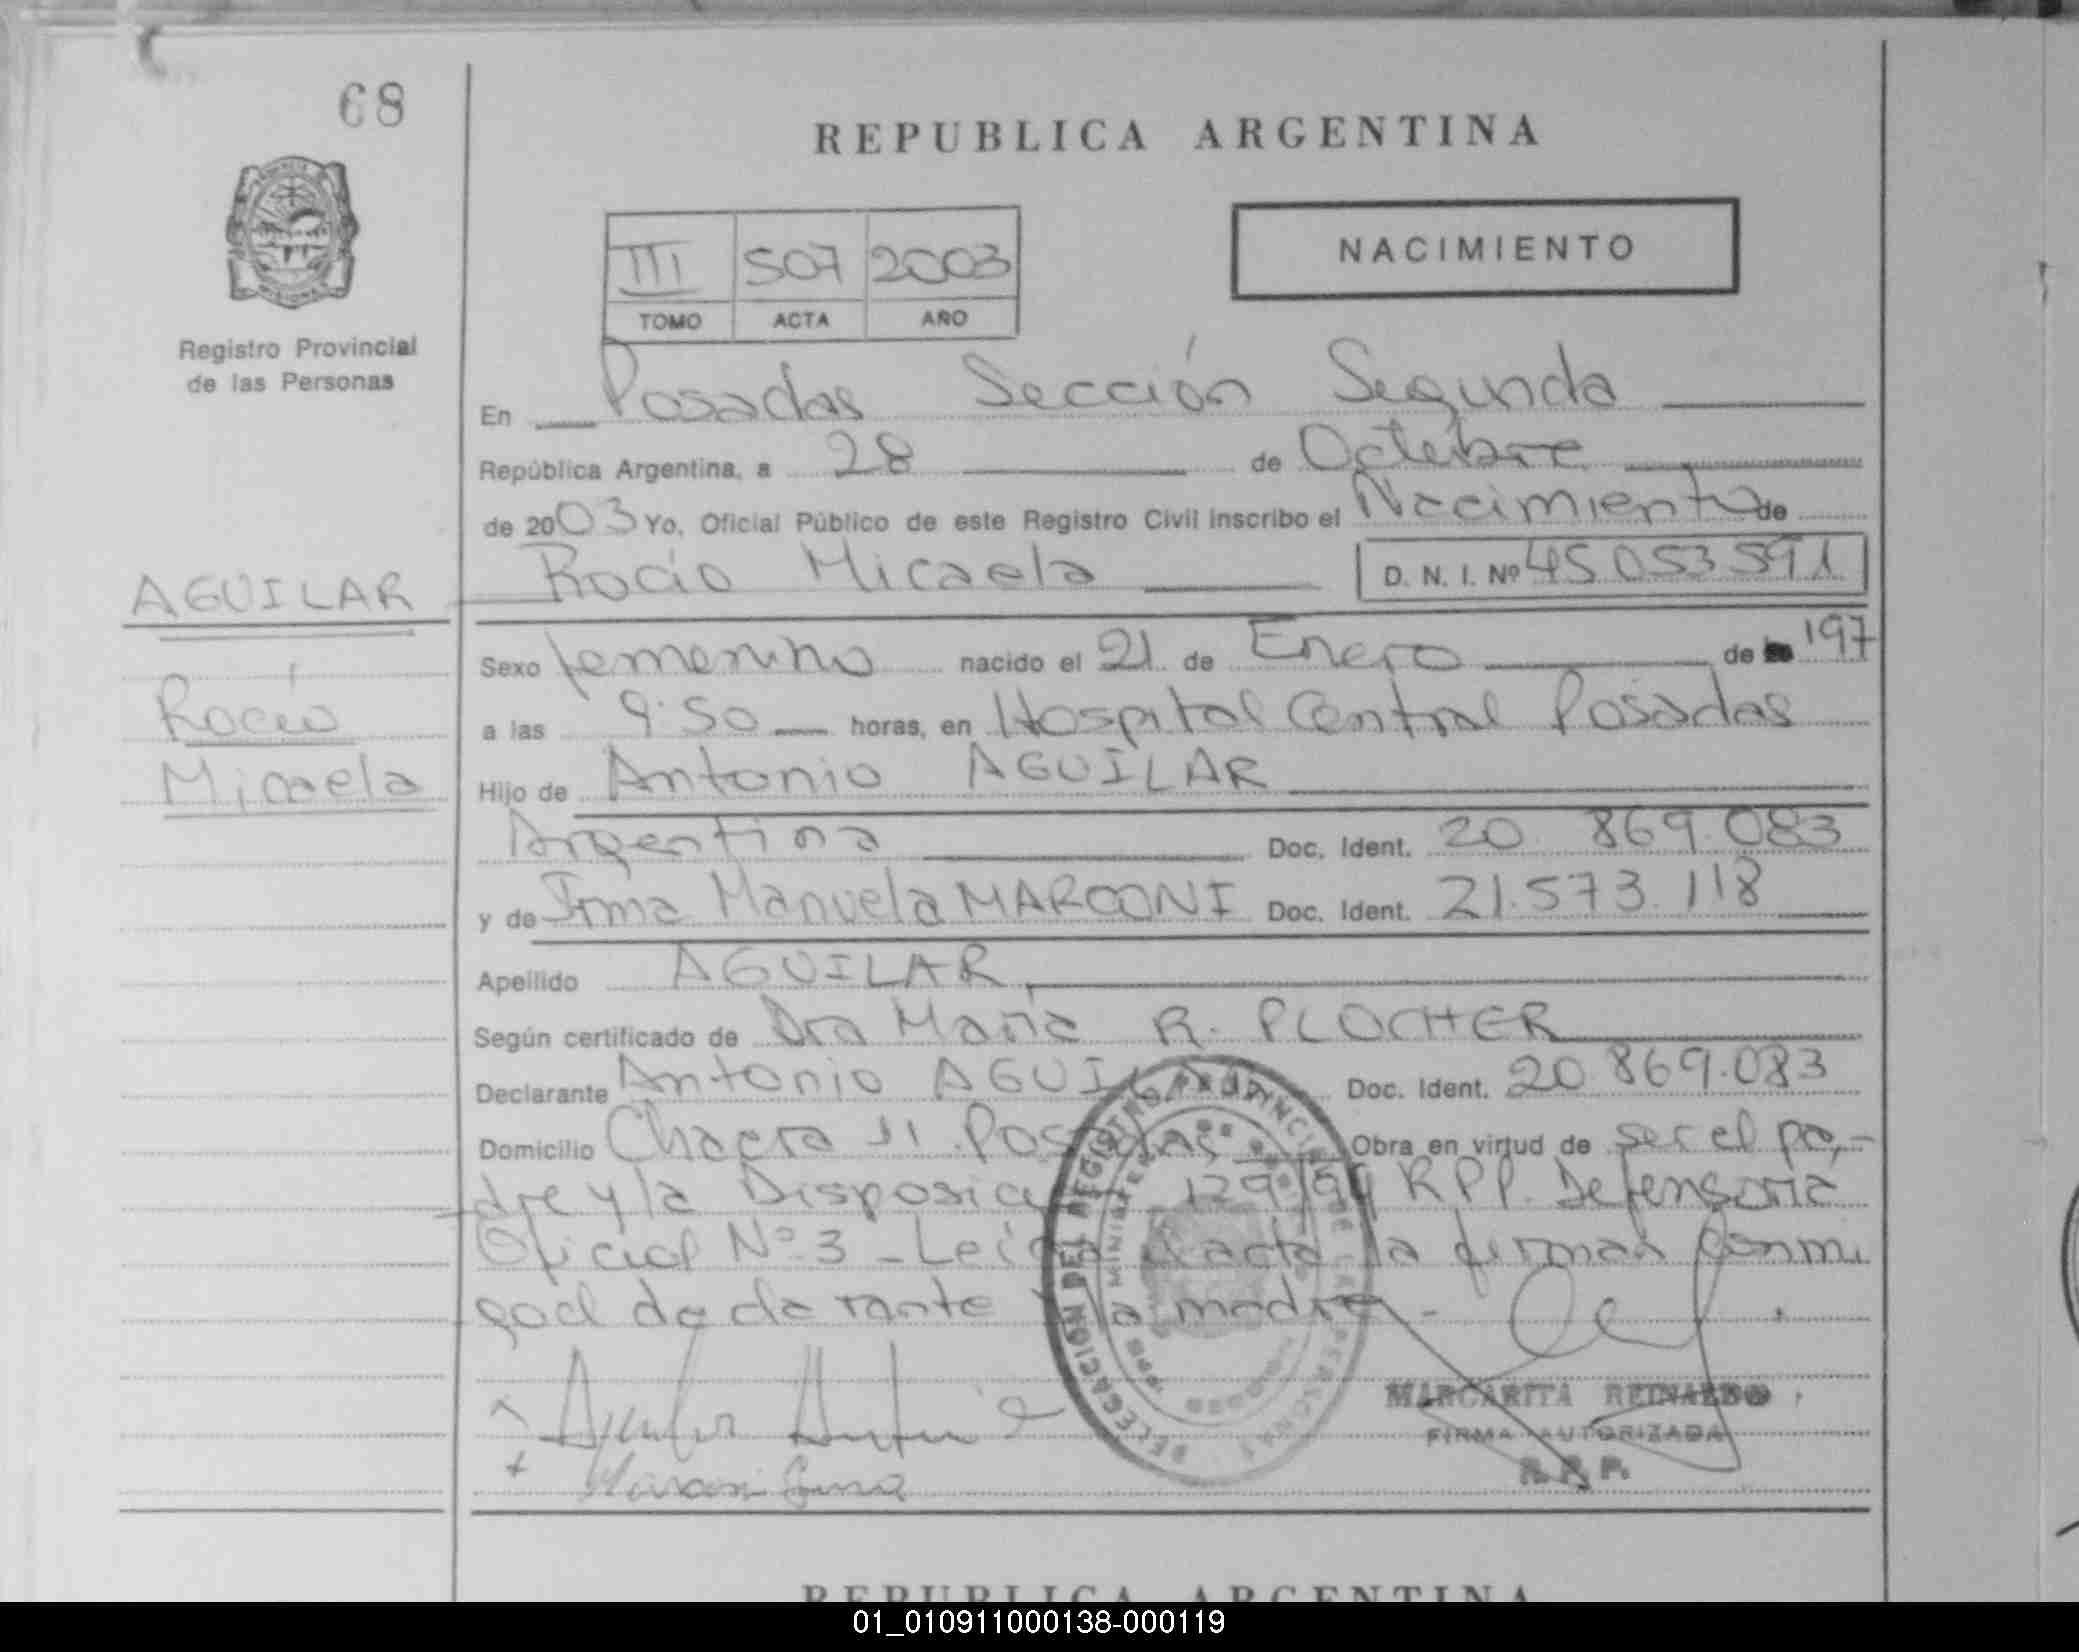 68
REPUBLICA ARGENTINA
III 507 2003
TOMO ACTA AÑO
NACIMIENTO
Registro Provincial
de las Personas
En Posadas Sección Segunda
República Argentina, a 28 de Octubre
de 2003 Yo, Oficial Público de este Registro Civil inscribo el Nacimiento de
Rocío Micaela D. N. I. Nº 45.053.591
AGUILAR
Rocío
Micaela
Sexo femenino nacido el 21 de Enero de 197
a las 9:50 horas, en Hospital Central Posadas
Hijo de Antonio AGUILAR
Argentina Doc. Ident. 20 869.083
y de Irma Manuela MARCONI Doc. Ident. 21.573.118
Apellido AGUILAR
Según certificado de Dra María R. PLOCHER
Declarante Antonio AGUILAR Doc. Ident. 20.869.083
Domicilio Chacra 11. Posadas Obra en virtud de ser el pa-
dre y la Disposición 129/99 RPP. Defensoría
Oficial Nº 3 - Leída el acta la firman conmi
go el declarante y la madre -
DELEGACION DEL REGISTRO PROVINCIAL DE LAS PERSONAS
MARGARITA REINALDO
FIRMA AUTORIZADA
R. P. P.
REPUBLICA ARGENTINA
01_010911000138-000119